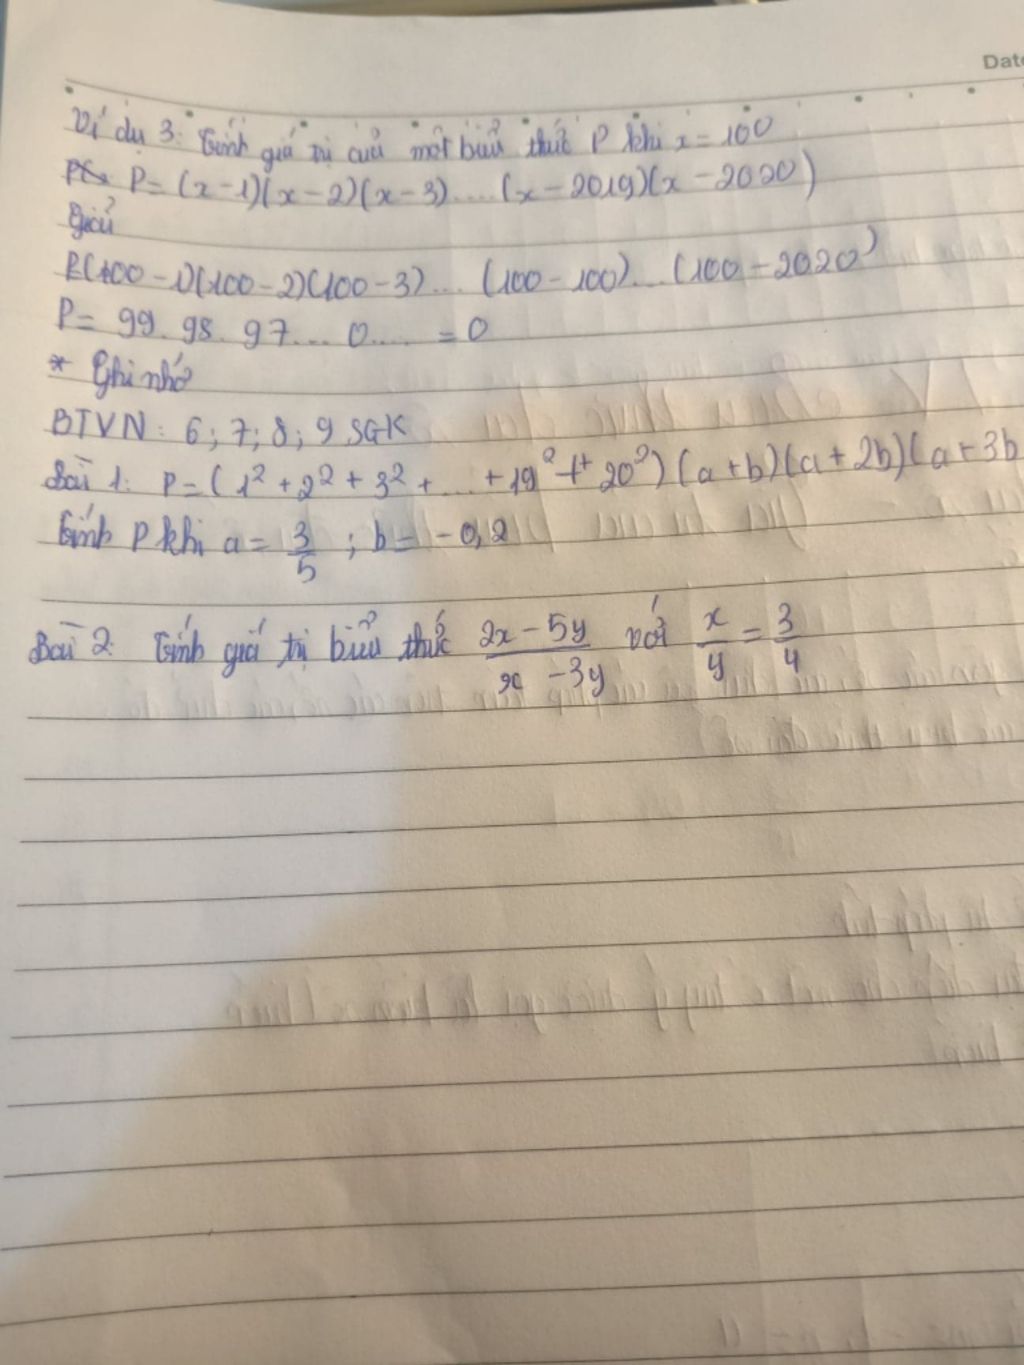 Date
Ví dụ 3: Tính giá trị của một biểu thức P khi x = 100
P = (x-1)(x-2)(x-3)....(x-2019)(x-2020)
Giải
P(100-1)(100-2)(100-3)...(100-100)...(100-2020)
P = 99.98.97....0.... = 0
* Ghi nhớ
BTVN: 6; 7; 8; 9 SGK
Bài 1: P = (1² + 2² + 3² + ... + 19² + 20²)(a+b)(a+2b)(a+3b
Tính P khi a = 3/5 ; b = -0,2
Bài 2: Tính giá trị biểu thức (2x - 5y)/(x - 3y) với x/y = 3/4